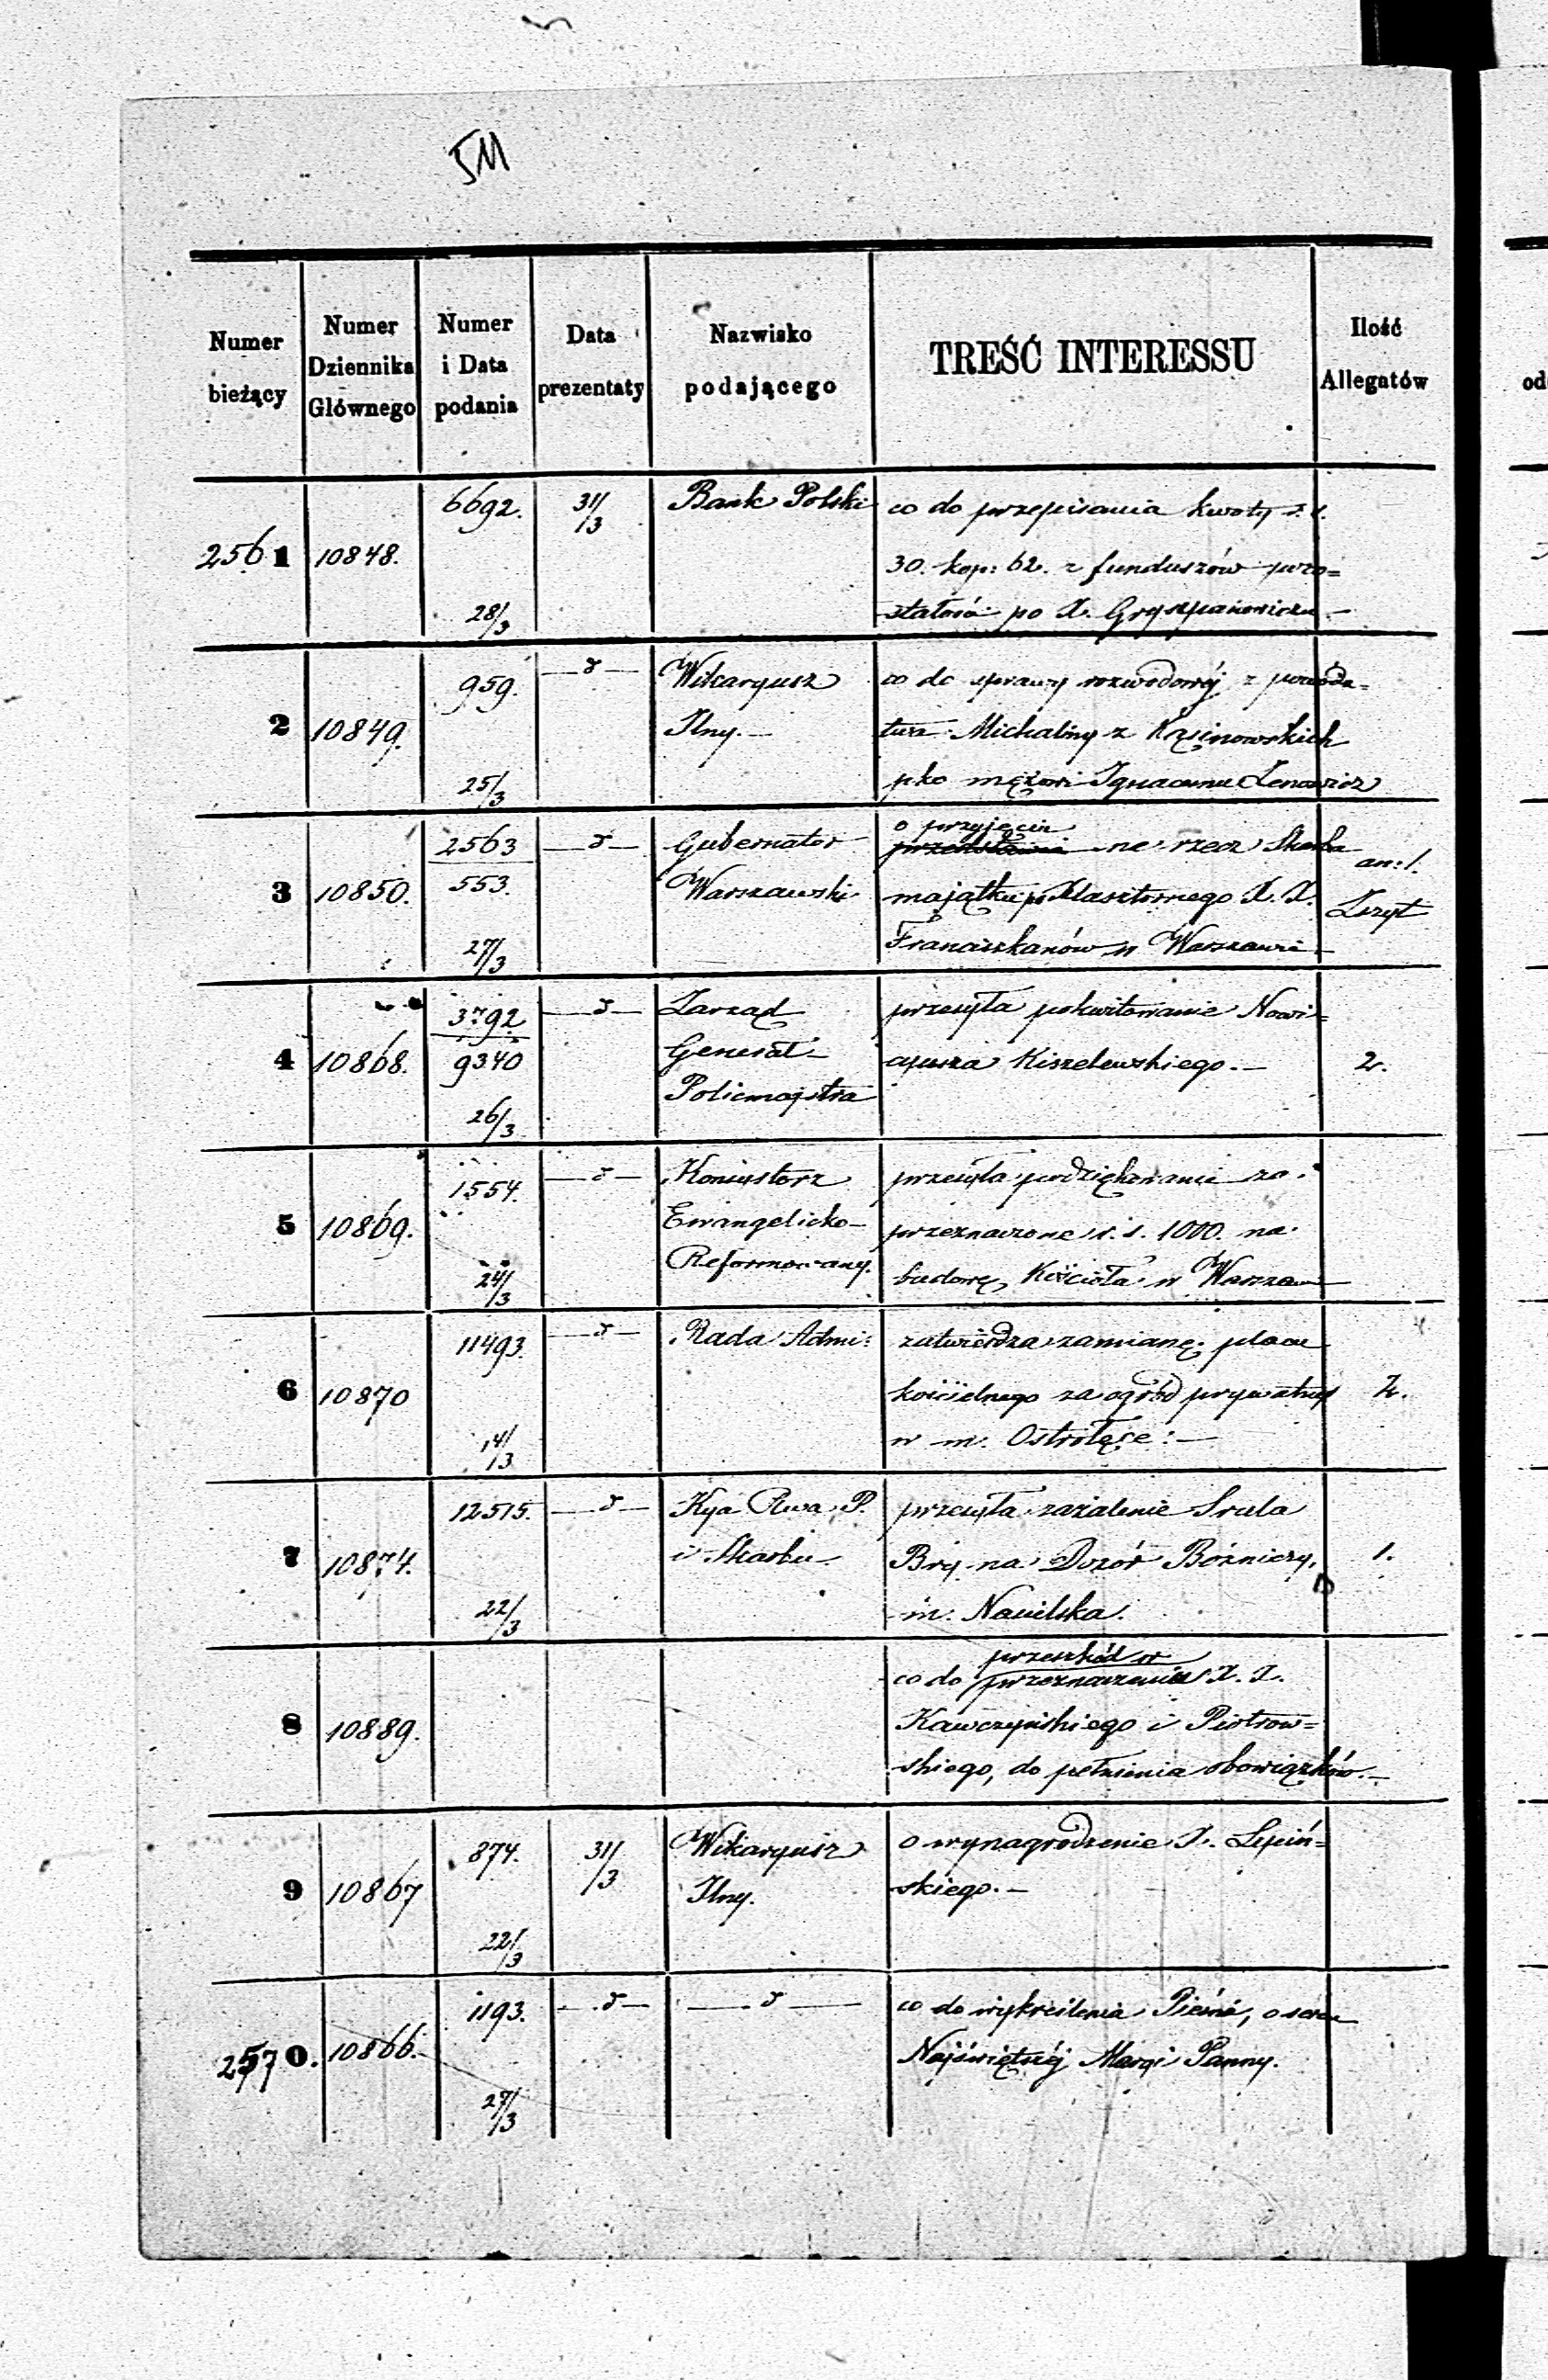 511
Numer bieżący
Numer Dziennika Głównego
Numer i Data podania
Data prezentaty
Nazwisko podającego
TREŚĆ INTERESSU
Ilość Allegatów
2561 10848. 6692. 28/3 31/13 Bank Polski
co do przepisania kwoty r. s.
30. kop: 62. z funduszów pozo=
stałości po X.
2 10849. 959. 25/3 —d— Wikaryusz
Jlny.—
co do sprawy rozwodowéj z powódz=
twa Michaliny z
pko mężowi Ignacemu
3 10850. 2563 553. 27/3 —d— Gubernator
Warszawski
o przyjęcie
na rzecz Skarbu
majątku po Klasztornego X. X.
Franciszkanów w Warszawie—
an: 1.
Zszyt
4 10868. 3792 9340 26/3 —d— Zarząd
Generał—
Policmajstra
przesyła pokwitowanie Nowi=
cyusza Kiszelewskiego.—
2.
5 10869. 1554. 24/3 —d— Konsystorz
Ewangelicko—
Reformowany.
przesyła podziękowanie za
przeznaczone r. s. 1000. na
budowę Kościoła w Warszaw
6 10870 11493. 14/3 —d— Rada Admi:
zatwierdza zamianę placu
kościelnego za ogród prywatny
w m. Ostrołęce:—
2.
7 10874. 12515. 22/3 —d— Kya Rwa P.
i Skarbu—
przesyła zażalenie Srula
Bry na Dozór Bóżniczy,
m. Nasielska.
1.
8 10889.
przeszkód w
co do przeznaczeniu X. X.
Kawczyńskiego i Piotrow=
skiego, do pełnienia obowiązków.—
9 10867 874. 22/3 31/3 Wikaryusz
Jlny.
o wynagrodzenie X. Lipiń=
skiego.—
2570. 10866. 1193. 27/3 —d— —d—
co do wykreślenia Pieśni, o sercu
Najświętszéj Maryi Panny.